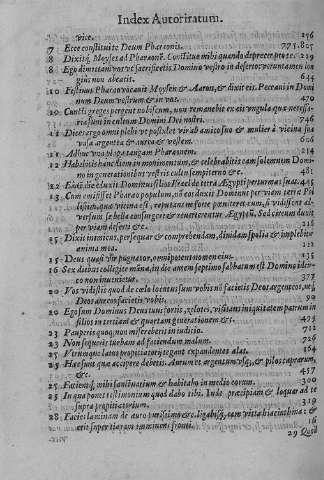 Index Autoritatum.
vice. 256
7 Ecce constitui te Deum Pharaonis. 775.805
8 Dixitq́; Moyses ad Pharaonē. Constitue mihi quando deprecer pro te. 239
8 Ego dimittam vos vt sacrificetis Domino vestro in deserto: veruntamen lon
gius non abeatis. 644
10 Festinus Pharao vocauit Moysen & Aaron, & dixit eis. Peccaui in Domi
num Deum vestrum & in vos. 470
10 Cuncti greges pergent nobiscum, non remanebit ex eis vngula quæ necessa-
ria sunt in cultum Domini Dei nostri. 746
11 Dices ergo omni plebi vt postulet vir ab amico suo & mulier à vicina sua
vasa argentea & aurea & vestem. 606
11 Adhuc vna plaga tangam Pharaonem. 214
12 Habebitis hanc diem in monimentum, & celebrabitis eam solemnem Domi-
no in generationibus vestris cultu sempiterno &c. 481
12 Eadē die eduxit Dominus filios Israel de terra Ægypti per turmas suas. 415
13 Cum emisisset Pharao populum, nō eos duxit Dominus per viam terræ Phi
listijm, quæ vicina est, reputans ne forte pœniteret eum, si vidisset ad-
versum se bella consurgere & reuerteretur Ægyptū. Sed circum duxit
per viam deserti &c. 215
15 Dixit inimicus, persequar & comprehendam, diuidam spolia & implebitur
anima mea. 111
15 Deus quasi vir pugnator, omnipotens nomen eius. 135
16 Sex diebus colligite māna, in die autem septimo sabbatum est Domino idcir-
co non inuenietur. 377
20 Vos vidistis quod de cœlo locutus sum vobis nō facietis Deos argenteos, neq́;
Deos aureos facietis vobis. 99
20 Ego sum Dominus Deus tuus fortis, zelotes, visitans iniquitatem patrum in
filios in tertiam & quartam generationem &c. 475
23 Pauperis quoq́; non misereberis in iudicio. 712
23 Non sequeris turbam ad faciendum malum. 726
25 Vtrunq́; latus propitiatorij tegant expandentes alas. 164
25 Hæc sunt quæ accipere debetis. Aurum & argentum, æsq́;, & pilos caprarum,
&c. 457
25 Facientq́; mihi sanctuarium & habitabo in medio eorum. 300
25 In qua pones testimonium quod dabo tibi. Inde præcipiam & loquar ad te
supra propitiatorium. 319
28 Facies laminam de auro purissimo &c. ligabisq́; eam vitta hiacinthina: &
erit super tiaram imminens fronti. 16
29 Quod